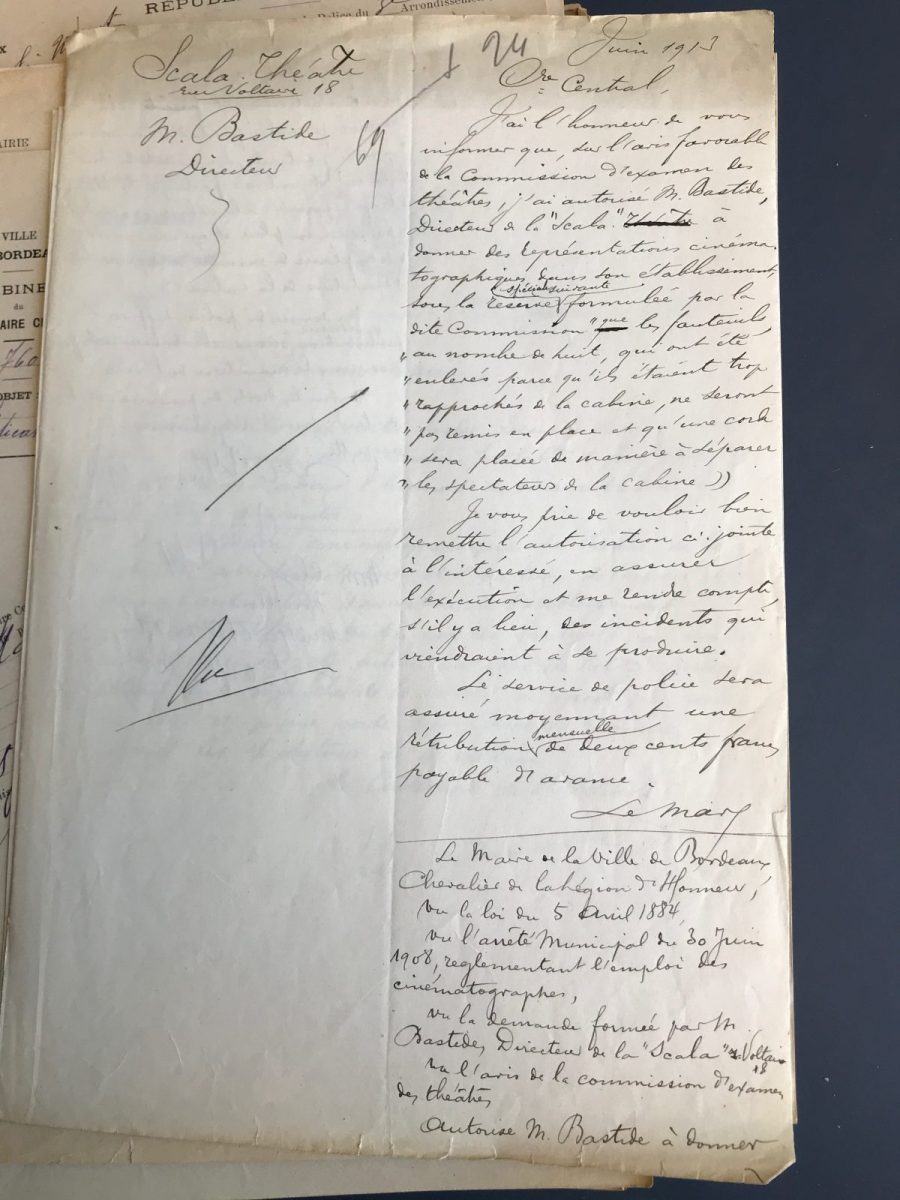 RÉPU
Police du
Arrondissement
AIRIE
VILLE
BORDEA
BINE
du
AIRE C
760
OBJET
Scala-Théâtre
rue Voltaire 18
M. Bastide
Directeur
69
24
Juin 1913
Cre Central,
J'ai l'honneur de vous
informer que, sur l'avis favorable
de la Commission d'examen des
théâtres, j'ai autorisé M. Bastide,
Directeur de la "Scala" Théâtre à
donner des représentations cinéma-
tographiques dans son établissement,
spéciale suivante
sous la réserve formulée par la
dite Commission " que les fauteuils,
" au nombre de huit, qui ont été
" enlevés parce qu'ils étaient trop
" rapprochés de la cabine, ne seront
" pas remis en place et qu'une corde
" sera placée de manière à séparer
" les spectateurs de la cabine ))
Je vous prie de vouloir bien
remettre l'autorisation ci-jointe
à l'intéressé, en assurer
l'exécution et me rendre compte,
s'il y a lieu, des incidents qui
viendraient à se produire.
Le service de police sera
assuré moyennant une
mensuelle
rétribution de deux cents francs
payable d'avance.
Le Maire
Le Maire de la Ville de Bordeaux
Chevalier de la Légion d'Honneur,
vu la loi du 5 Avril 1884,
vu l'arrêté Municipal du 30 Juin
1908, reglementant l'emploi des
cinématographes,
vu la demande formée par M.
Bastide, Directeur de la "Scala" r. Voltaire
18
vu l'avis de la commission d'examen
des théâtres
Autorise M. Bastide à donner